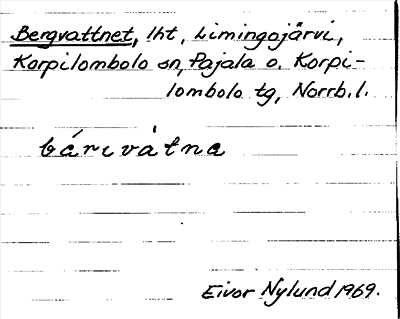 Bergvattnet, lht, Limingojärvi,
Korpilombolo sn, Pajala o. Korpi-
lombolo tg, Norrb. l.
bárɩvàtna
Eivor Nylund 1969.